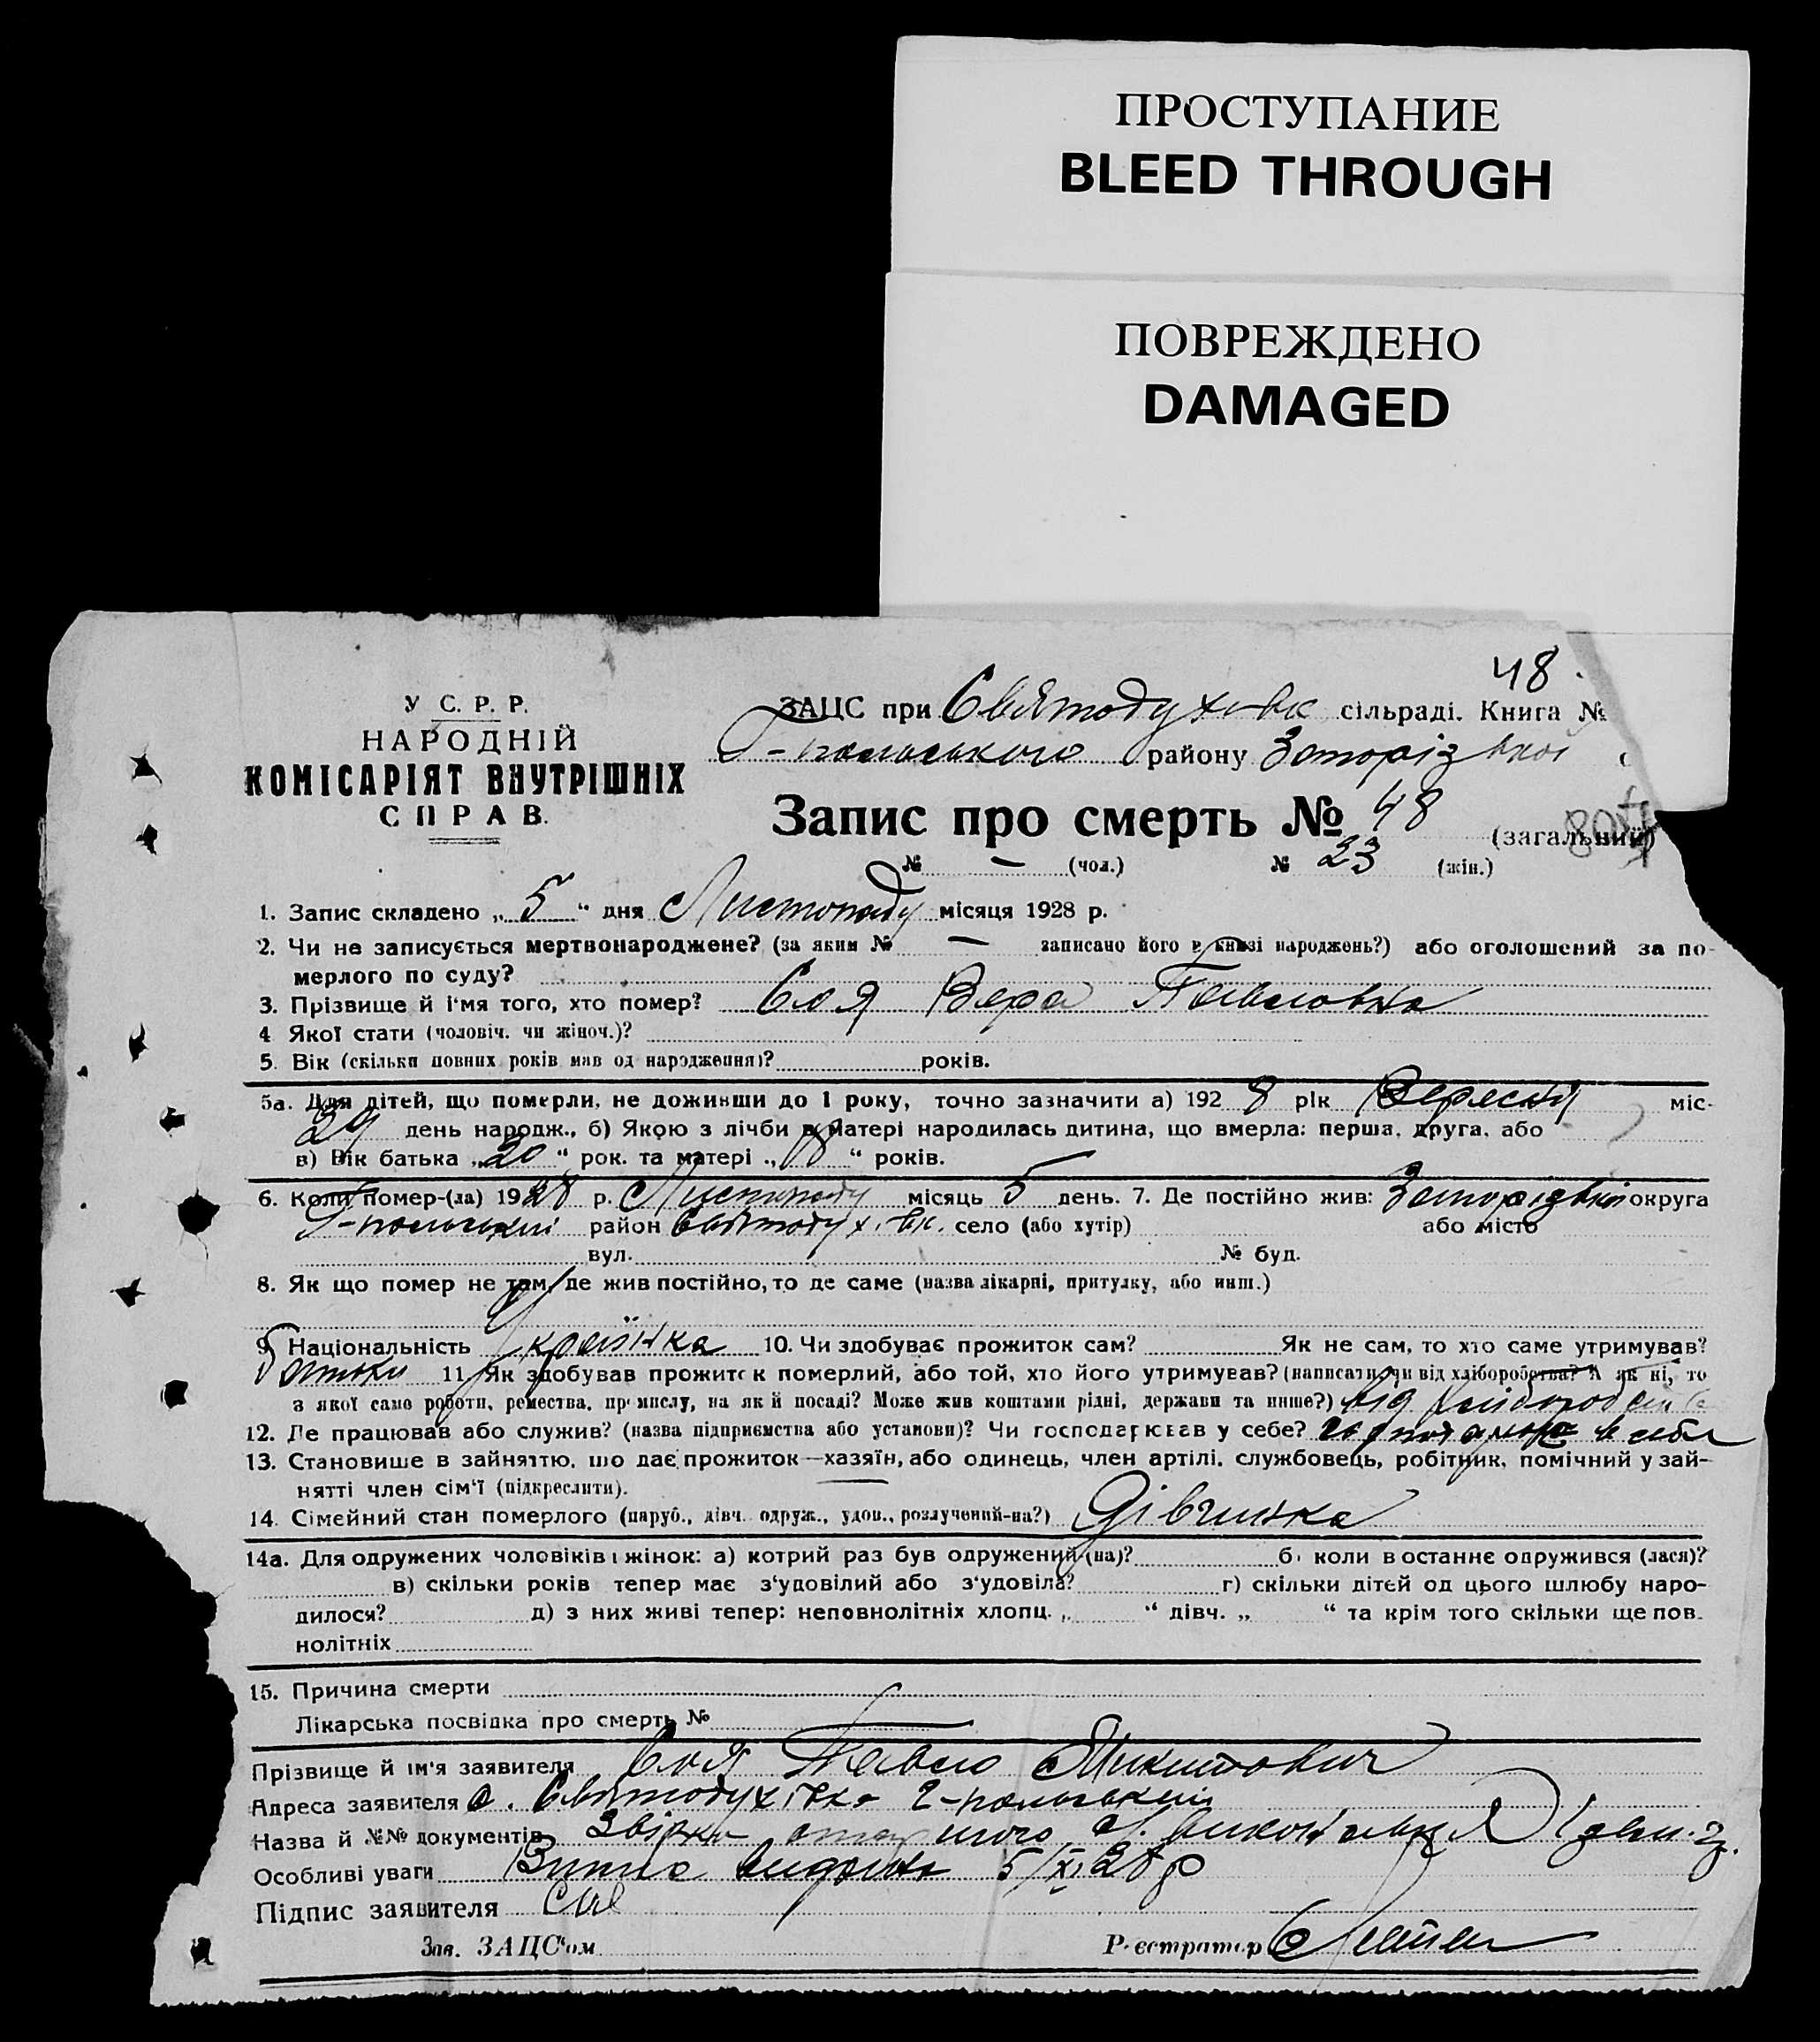 ПРОСТУПАНИЕ
BLEED THROUGH
ПОВРЕЖДЕНО
DAMAGED
48
У С. Р. Р.
НАРОДНІЙ
КОМІСАРІЯТ ВНУТРІШНІХ
СПРАВ.
ЗАЦС при Святодух-вк сільраді. Книга №
Г-польського району Запорізької
Запис про смерть № 48 (загальний)
№ — (чол.) № 23 (жін.)
1. Запис складено „ 5 “ дня Листопаду місяця 1928 р.
2. Чи не записується мертвонароджене? (за яким № — записано його в книзі народжень?) або оголошений за по-
мерлого по суду?
3. Прізвище й і‘мя того, хто помер? Соя Вера Павловна
4 Якої стати (чоловіч. чи жіноч.)?
5. Вік (скільки повних років мав од народження)? років.
5а. Для дітей, що померли, не доживши до 1 року, точно зазначити а) 192 8 рік Вересня міс-
29 день народж., б) Якою з лічби в матері народилась дитина, що вмерла: перша, друга, або
в) Вік батька „ 20 “ рок. та матері „ 18 “ років.
6. Коли помер-(ла) 1928 р. Листопаду місяць 5 день. 7. Де постійно жив: Запорізької округа
Г-польський район Святодух.-вк. село (або хутір) або місто
вул. № буд.
8. Як що помер не там, де жив постійно, то де саме (назва лікарні, притулку, або инш.)
9. Національність Українка 10. Чи здобуває прожиток сам? Як не сам, то хто саме утримував?
батьки 11. Як здобував прожиток померлий, або той, хто його утримував? (написати чи від хліборобства? А як ні, то
з якої саме роботи, ремества, промислу, на як й посаді? Може жив коштами рідні, держави та инше?) від
12. Де працював або служив? (назва підприємства або установи)? Чи господарював у себе? в себе
13. Становище в зайняттю, що дає прожиток—хазяїн, або одинець, член артілі, службовець, робітник, помічний у зай-
нятті член сім‘ї (підкреслити).
14. Сімейний стан померлого (паруб., дівч. одруж., удов., розлучений-на?) Дівчинка
14а. Для одружених чоловіків і жінок: а) котрий раз був одружений-(на)? б) коли востаннє одружився (лася)?
в) скільки років тепер має з‘удовілий або з‘удовіла? г) скільки дітей од цього шлюбу наро-
дилося? д) з них живі тепер: неповнолітніх хлопц. „ “ дівч. „ “ та крім того скільки ще пов-
нолітніх
15. Причина смерти
Лікарська посвідка про смерть №
Прізвище й ім‘я заявителя Соя Павло Микитович
Адреса заявителя с. Святодухівка Г-польський
Назва й №№ документів
Особливі уваги видана 5/XI 28 р
Підпис заявителя Соя
Зав. ЗАЦС‘ом Реєстратор